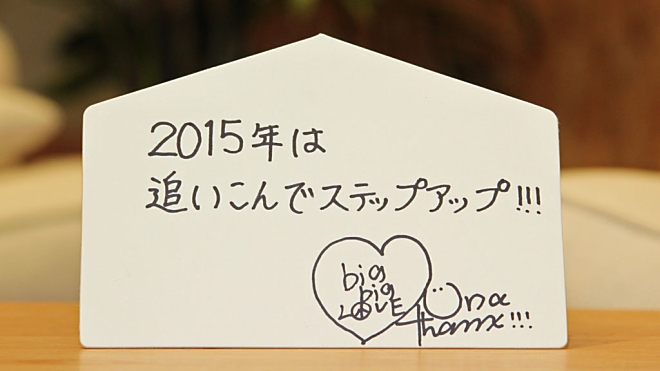 2015年は
追いこんでステップアップ!!!
big
big
LOVE
Una
thanx!!!